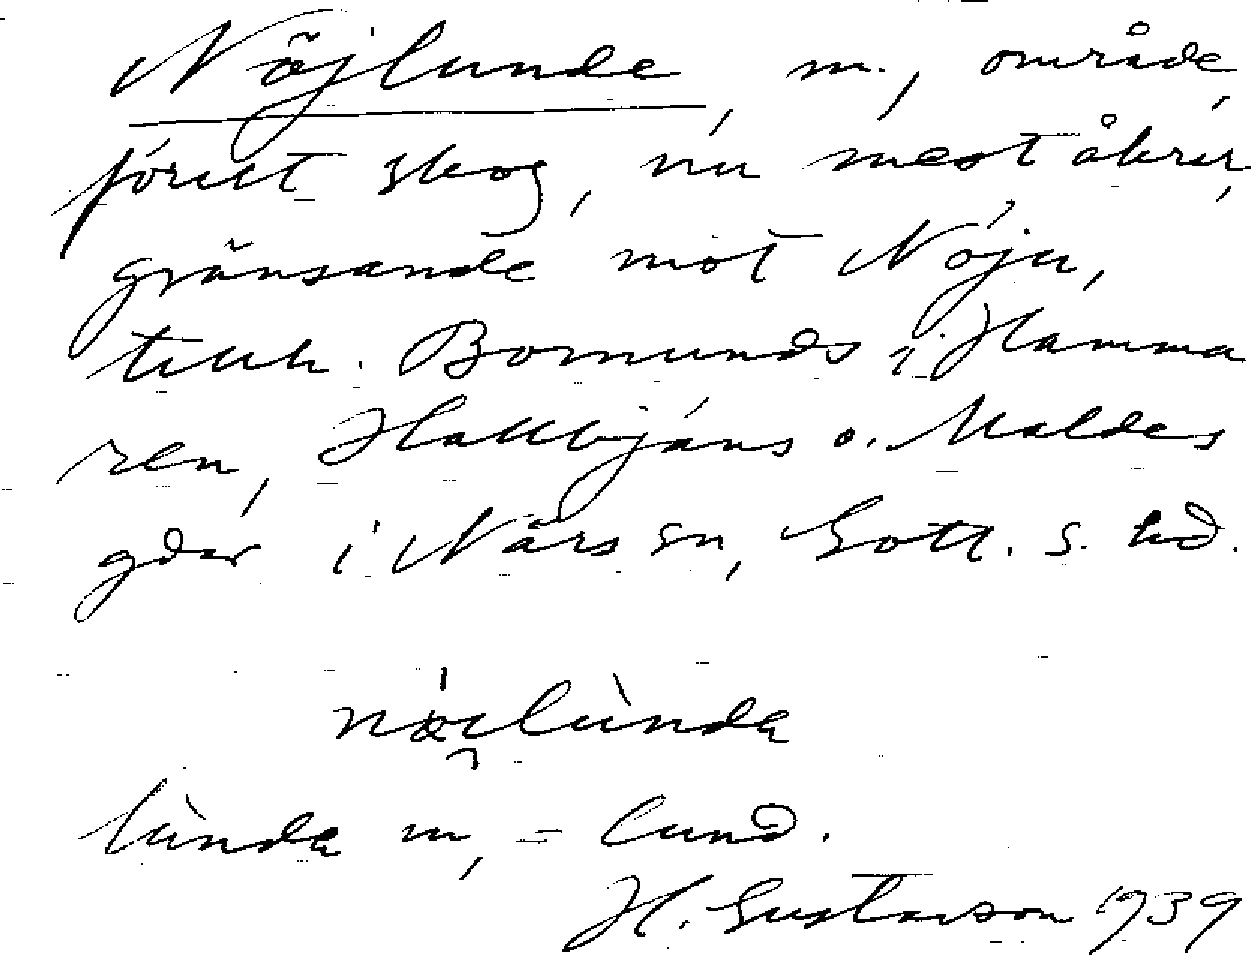 Nöjlunde, m., område,
förut skog, nu mest åkrar,
gränsande mot Nöju,
tillh. Bomunds i Hamma
ren, Hallbjäns o. Maldes
gdar i Närs sn, Gotl. s. hd.
lùnda m, = lund.
H. Gustavson 1939